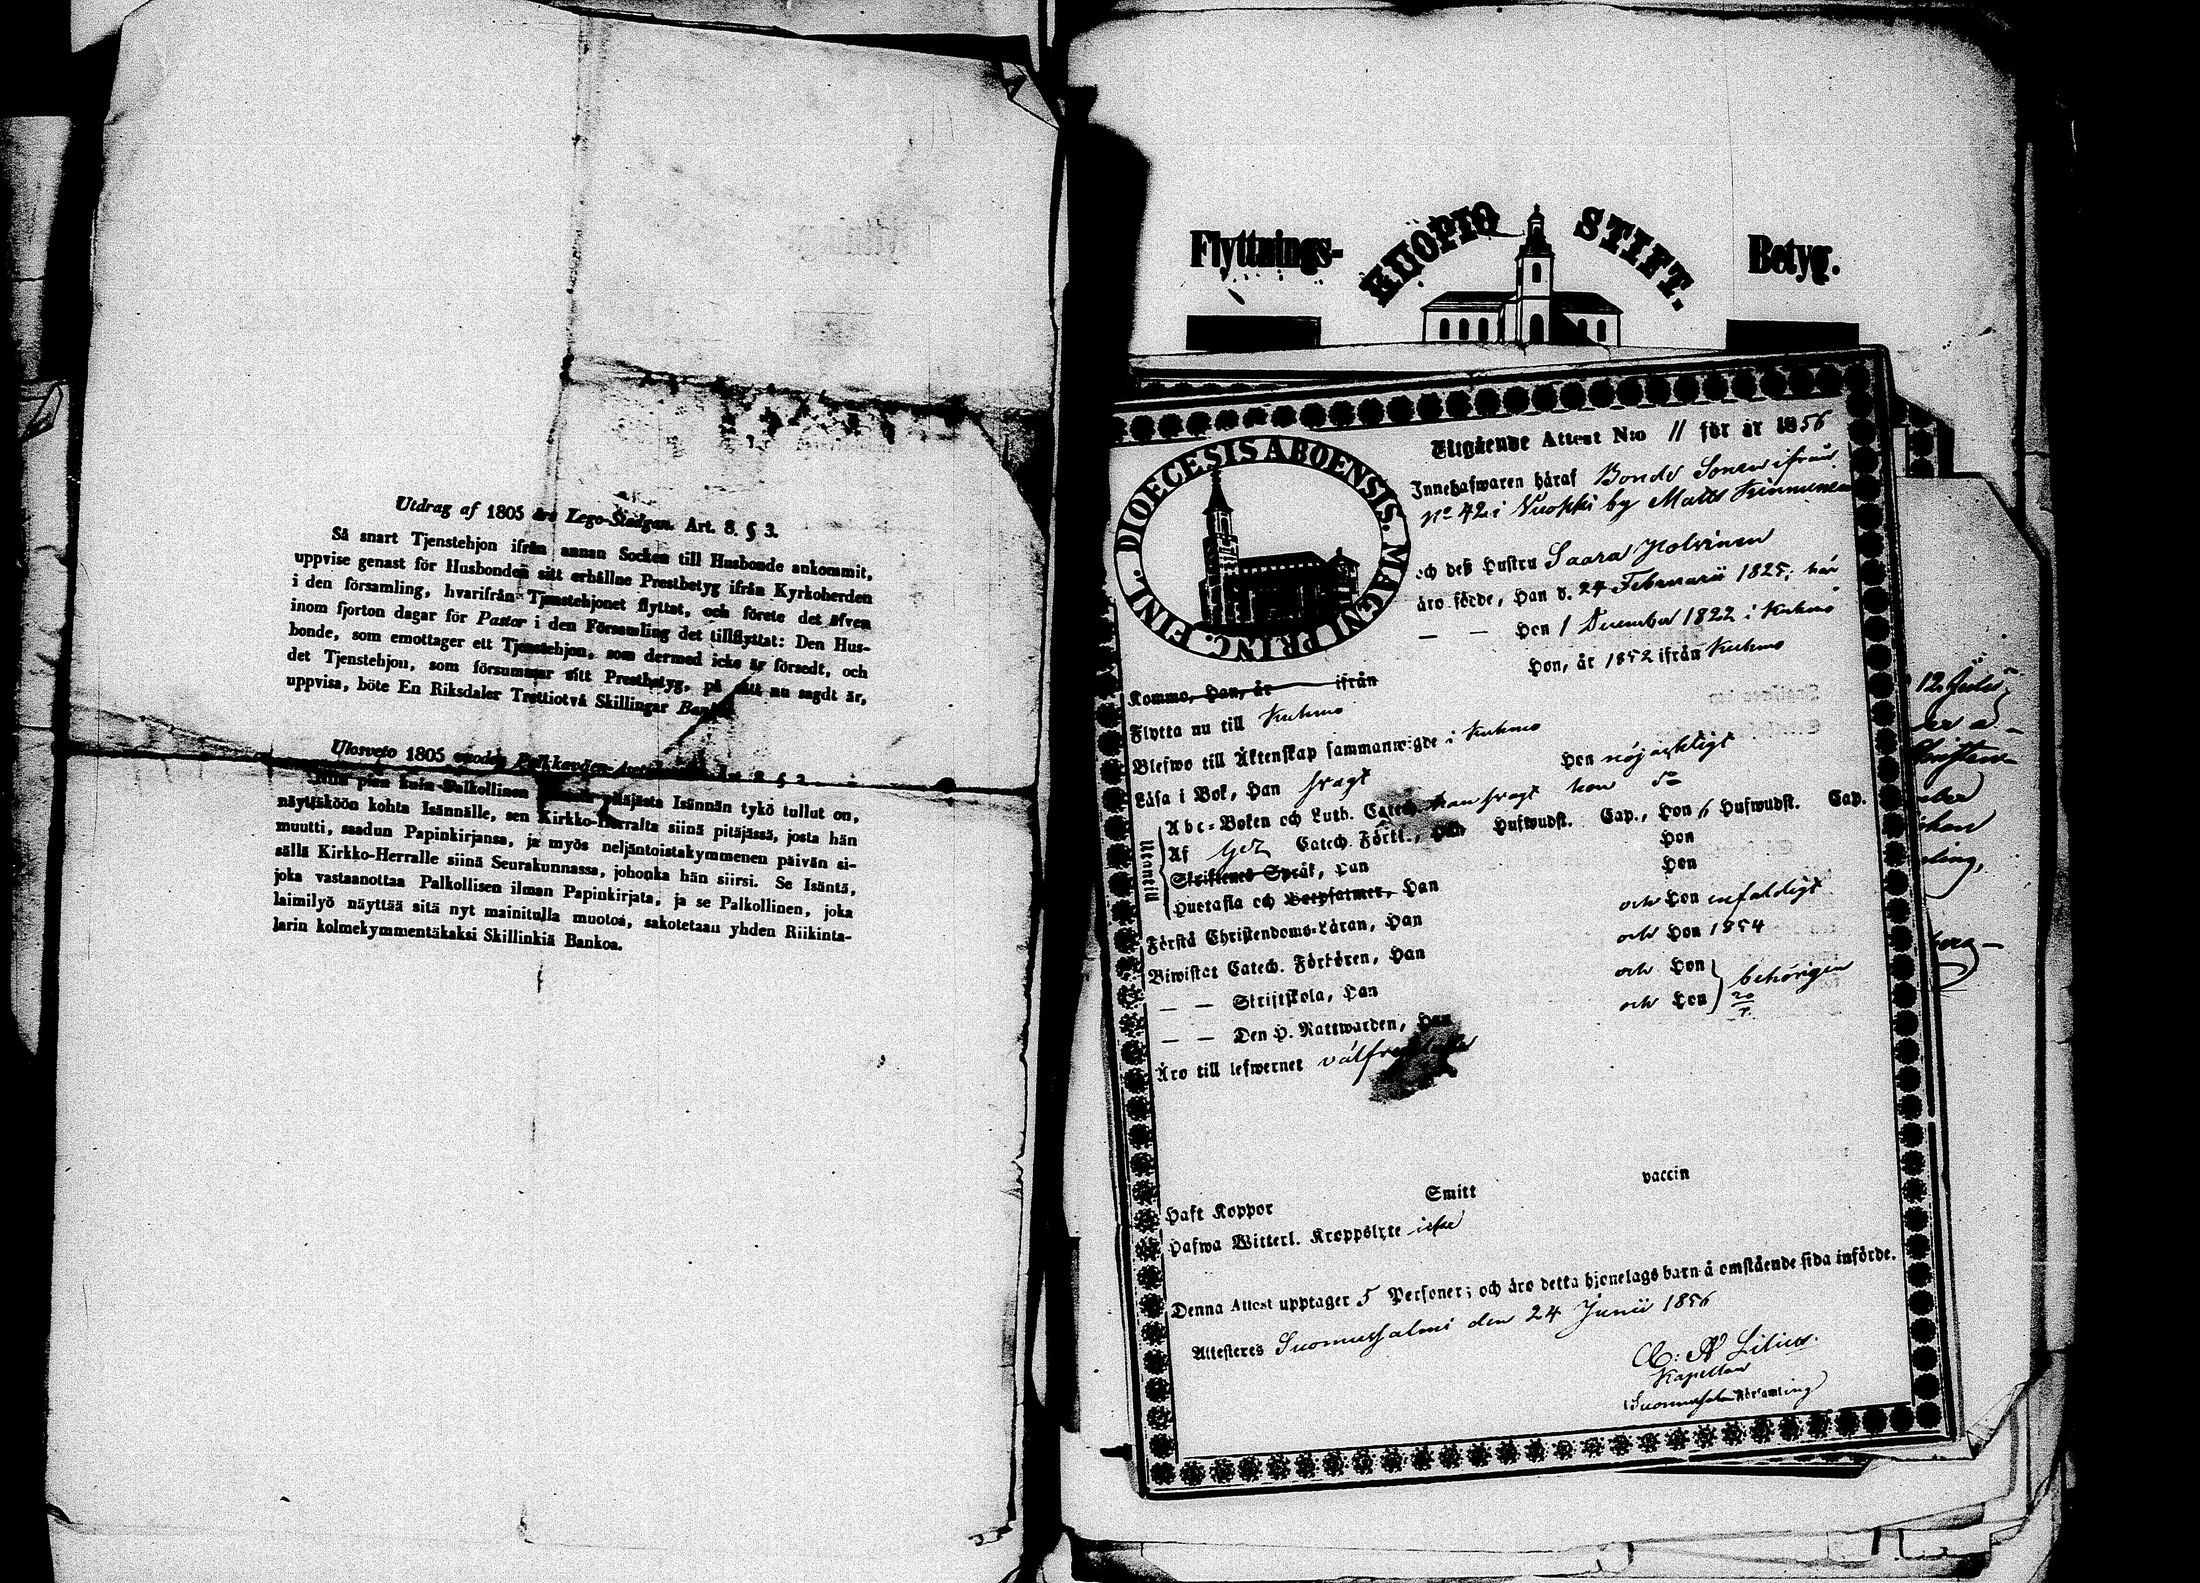 Utdrag af 1805 års Lego-Stadgan. Art. 8. § 3.
Så snart Tjenstehjon ifrån annan Socken till Husbonde ankommit,
uppvise genast för Husbonden sitt erhållne Prestbetyg ifrån Kyrkoherden
i den församling, hvarifrån Tjenstehjonet flyttat, och förete det äfven
inom fjorton dagar för Pastor i den Församling det tillflyttat: Den Hus-
bonde, som emottager ett Tjenstehjon, som dermed icke är försedt, och
det Tjenstehjon, som försummar sitt Prestbetyg, på sätt nu sagdt är,
uppvisa, böte En Riksdaler Trettiotvå Skillingar Banco.
Ulosveto 1805 vuoden
Niin pian kuin Palkollinen Isännän tykö tullut on,
näyttäköön kohta Isännälle, sen Kirkko-Herralta siinä pitäjässä, josta hän
muutti, saadun Papinkirjansa, ja myös neljäntoistakymmenen päivän si-
sällä Kirkko-Herralle siinä Seurakunnassa, johonka hän siirsi. Se Isäntä,
joka vastaanottaa Palkollisen ilman Papinkirjata, ja se Palkollinen, joka
laimilyö näyttää sitä nyt mainitulla muotoa, sakotetaan yhden Riikinta-
larin kolmekymmentäkaksi Skillinkiä Bankoa.
Flyttnings- KUOPIO STIFT. Betyg.
DIOECESIS ABOENSIS. MAGNI PRINC. FINL.
Utgående Attest N:o 11 för år 1856
Innehafwaren häraf Bonde Sonen ifrån
No 42 i Vuokki by Matts Kinnunen
och deß Hustru Saara Holvinen
äro födde, Han d. 24 Februarii 1825; här
— — Hon 1 December 1822 i Kuhmo
Komme, Han, år ifrån Hon, år 1852 ifrån Kuhmo
Flytta nu till Kuhmo
Blefwo till Äktenskap sammanwigde i Kuhmo
Läsa i Bok, Han svagt Hon nöjaktigt
Utantill
Abc-Boken och Luth. Catech. Han svagt hon do
Af Catech. Förkl., Han Hufwudst. Cap., Hon 6 Hufwudst. Cap.
Skriftenes Språk, Han Hon
Hustafla och Botpsalmer, Han Hon
Förstå Christendoms-Läran, Han och Hon enfaldigt
Biwistat Catech. Förhören, Han och Hon 1854
— — Skriftskola, Han och Hon behörigen
— — Den H. Nattwarden, Han och Hon
Äro till lefwernet
Haft Koppor Smitt vaccin
Hafwa Witterl. Kroppslyte icke
Denna Attest upptager 5 Personer; och äro detta hjonelags barn å omstående sida införde.
Attesteres Suomussalmi den 24 Junii 1856
Lilius.
Kapellan
i Suomussalmi Församling
12 Julii